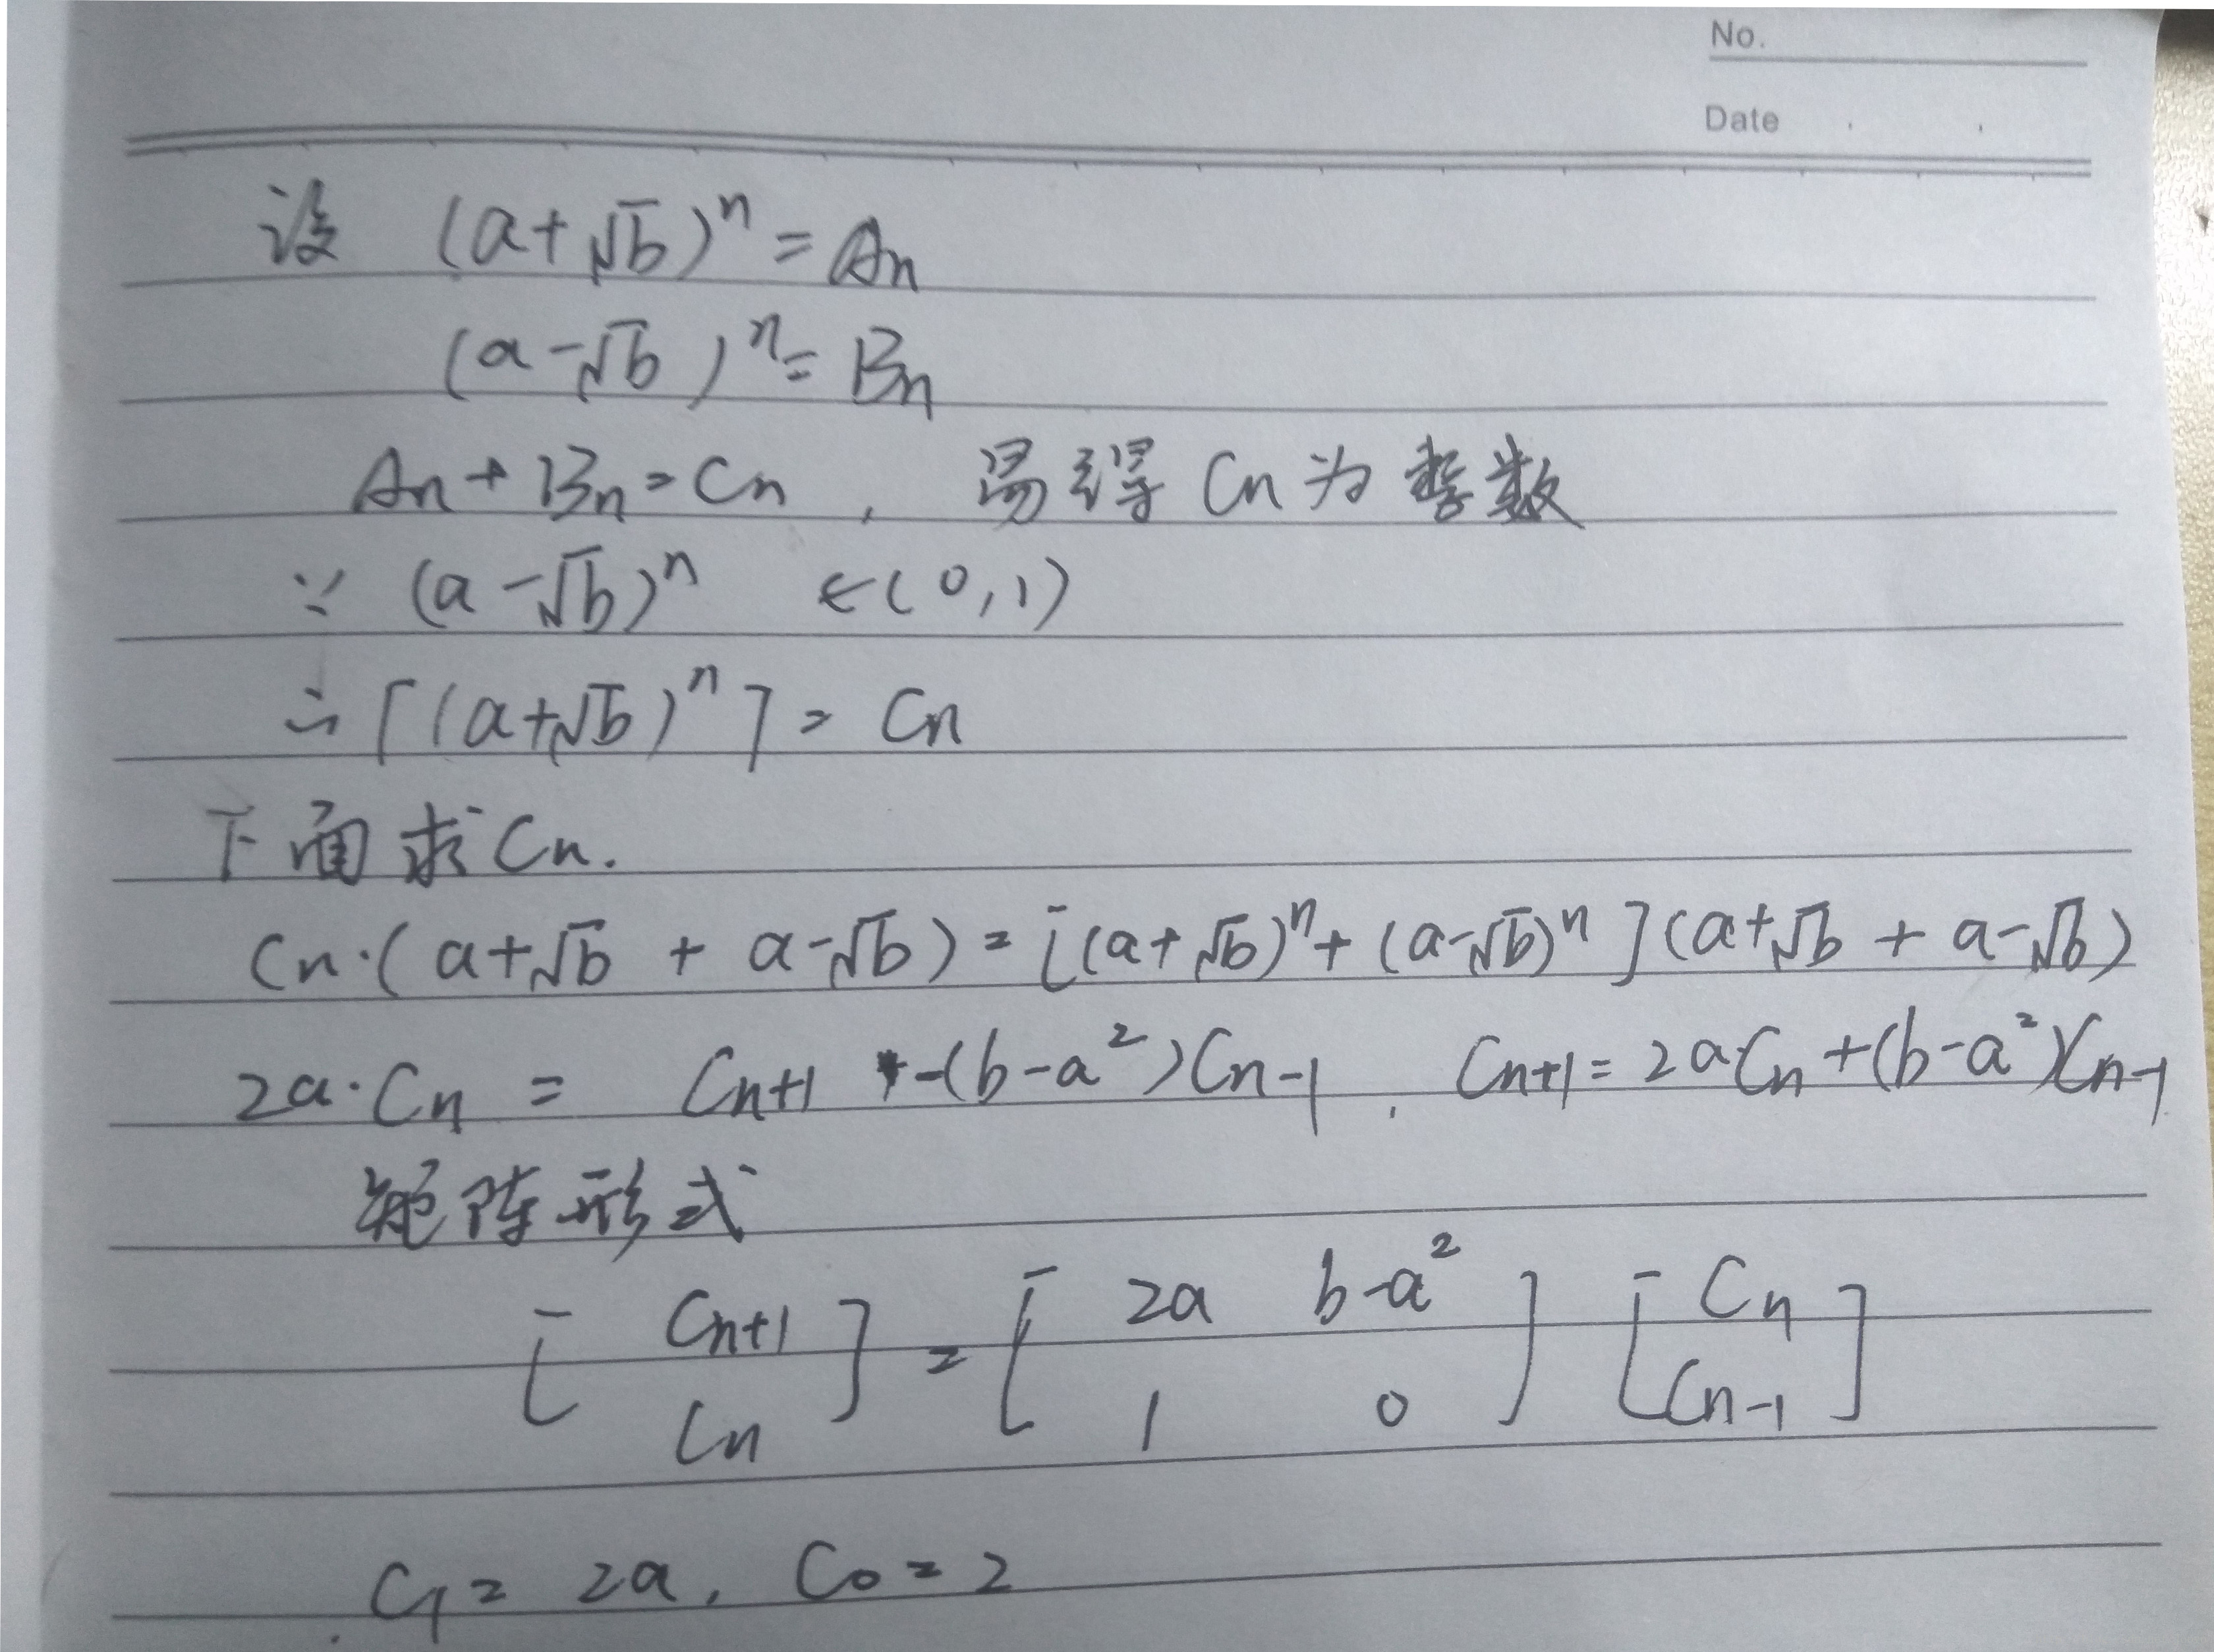 No.
Date
设 (a+√b)ⁿ = An
(a-√b)ⁿ = Bn
An + Bn = Cn , 易得 Cn 为整数
∵ (a-√b)ⁿ ∈(0,1)
∴ ⌈(a+√b)ⁿ⌉ = Cn
下面求 Cn.
Cn·(a+√b + a-√b) = [(a+√b)ⁿ + (a-√b)ⁿ](a+√b + a-√b)
2a·Cn = Cn+1 -(b-a²)Cn-1 , Cn+1 = 2aCn+(b-a²)Cn-1
矩阵形式
[Cn+1 Cn] = [2a b-a² 1 0] [Cn Cn-1]
C1 = 2a, C0 = 2